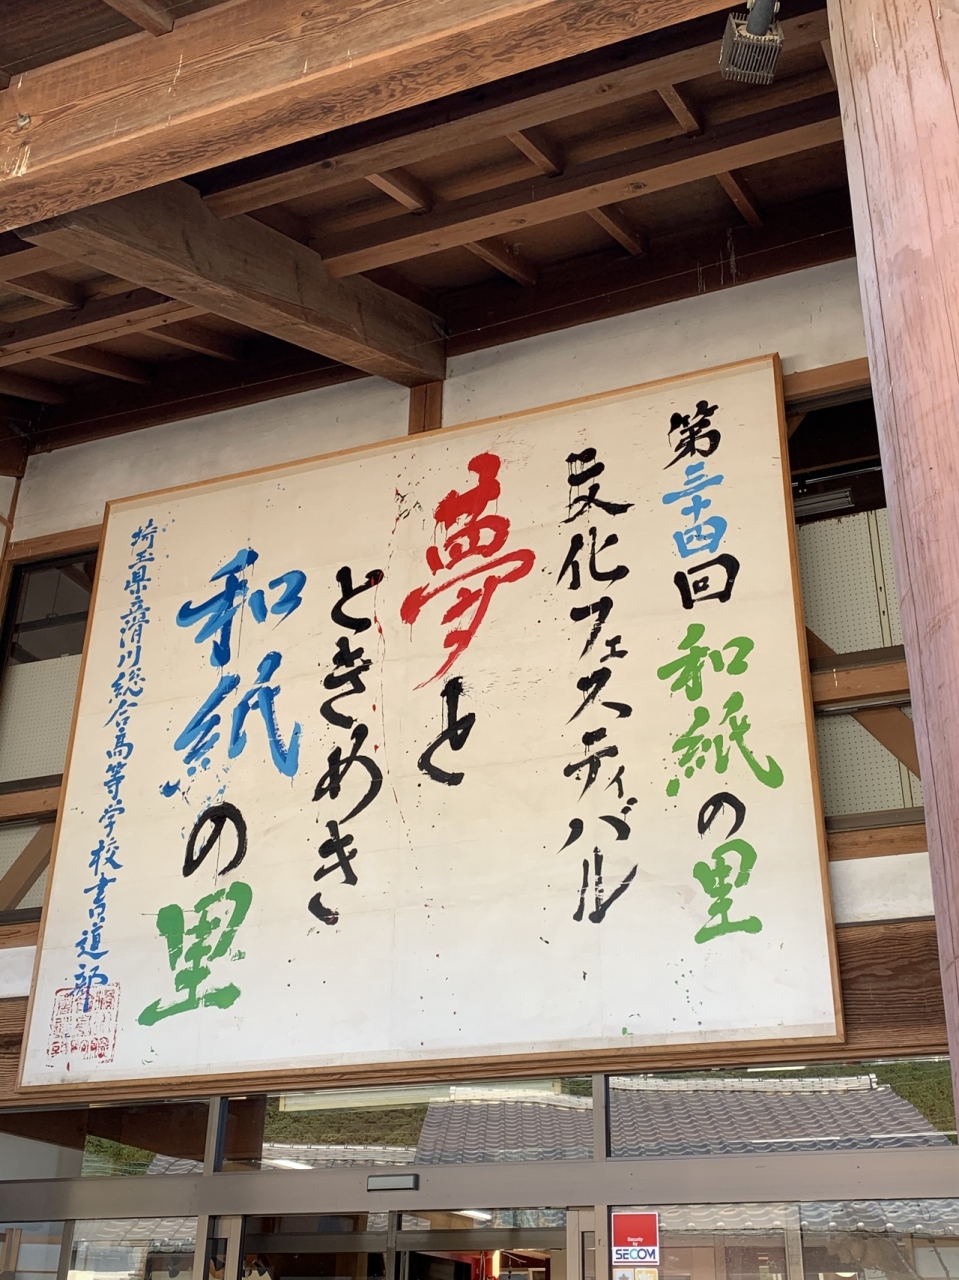 第三十四回 和紙の里
文化フェスティバル
夢と
ときめき
和紙の里
埼玉県立滑川総合高等学校書道部
Security
by
SECOM